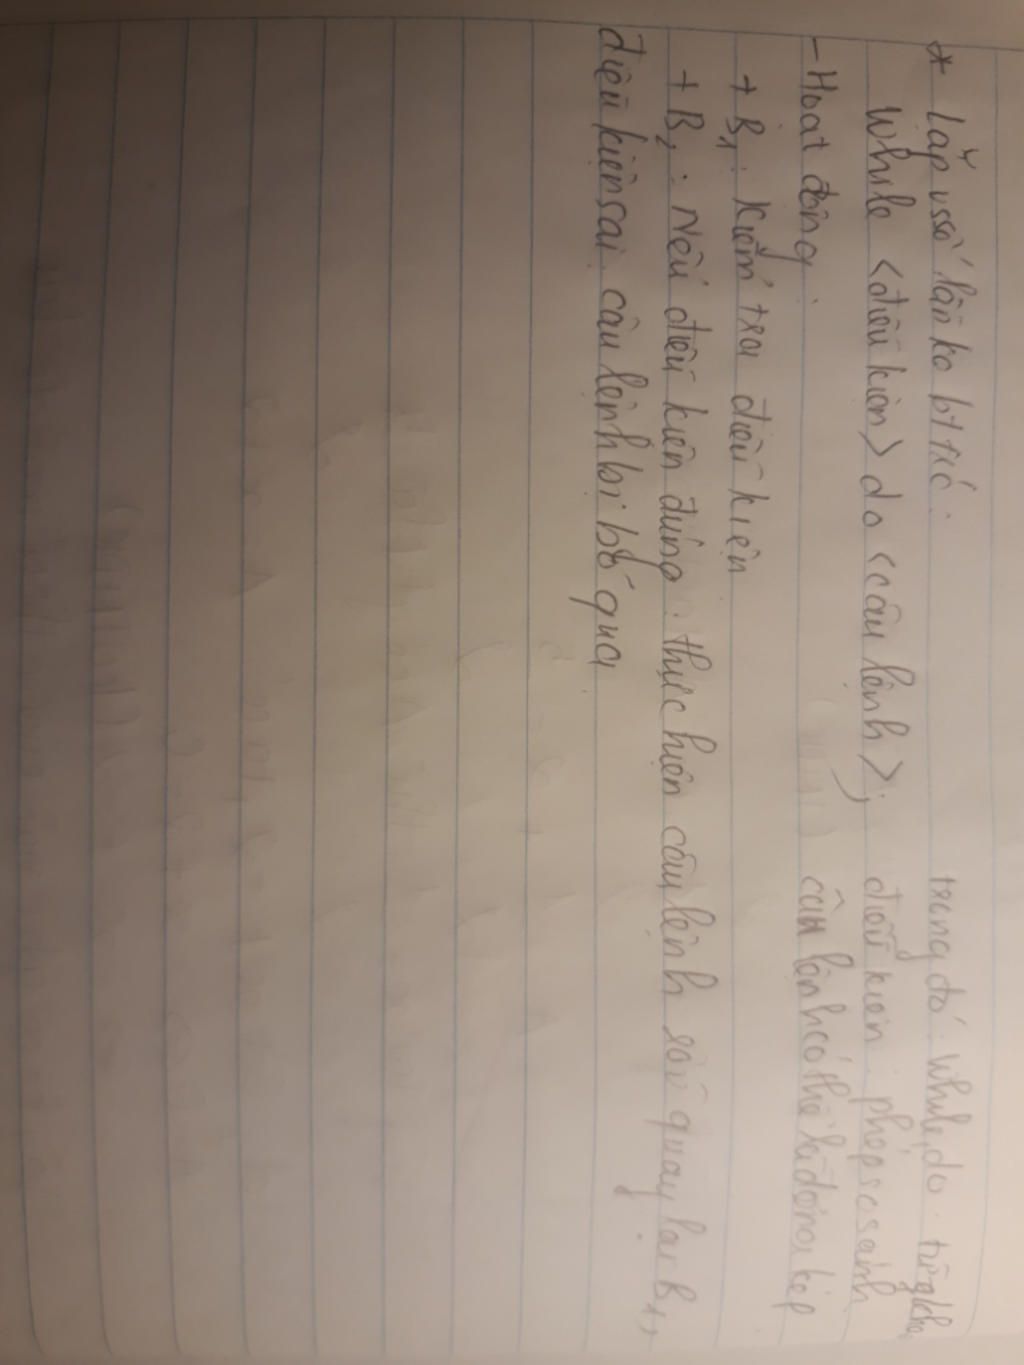 * Lặp vssố lần ko bt trc: trong đó: While, do: từ khoá
While <điều kiện> do <câu lệnh>; điều kiện: phép so sánh
- Hoạt động: câu lệnh có thể là đơn, kép
+ B1: Kiểm tra điều kiện
+ B2: Nếu điều kiện đúng: thực hiện câu lệnh rồi quay lại B1,
điều kiện sai câu lệnh bị bỏ qua